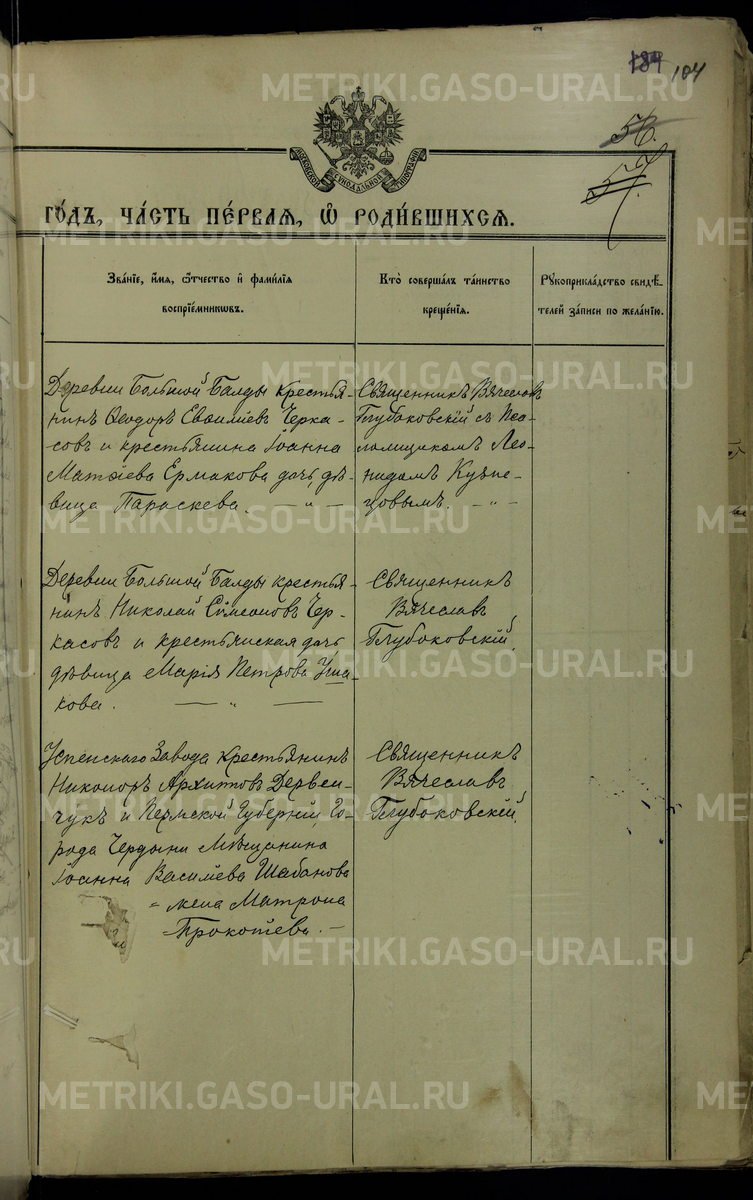 184 104
56.
57.
МОСКОВСКОЙ СѴНОДАЛЬНОЙ ТИПОГРАФІИ
ГО́ДЪ, ЧА́СТЬ ПЕ́РВАЯ, Ѽ РОДИ́ВШИХСЯ.
Зва́нїе, и́мя, ѻ҆́тчество и҆ фами́лїя
воспрїе́мниковъ.
Кто̀ соверша́лъ та́инство
креще́нїя.
Рꙋкоприкла́дство свидѣ́-
телей за́писи по жела́нїю.
Деревни Большой Балды крестья-
нинъ Ѳеодоръ Евѳиміевъ Черка-
совъ и крестьянина Іоанна
Матѳіева Ермакова дочь, дѣ-
вица Параскева. — „ —
Священникъ Вячеславъ
Глубоковскій съ Пса-
ломщикомъ Лео-
нидомъ Кузне-
цовымъ. - „ -
Деревни Большой Балды крестья-
нинъ Николай Сѵмеоновъ Чер-
касовъ и крестьянская дочь
дѣвица Марія Петрова Уша-
кова. — „ —
Священникъ
Вячеславъ
Глубоковскій.
Успенскаго Завода крестьянинъ
Никоноръ Архиповъ Дервей-
чукъ и Пермской Губерніи, Го-
рода Чердыни Мѣщанина
Іоанна Василіева Шабанова
= жена Матрона
Прокопіева. —
Священникъ
Вячеславъ
Глубоковскій.
METRIKI.GASO-URAL.RU